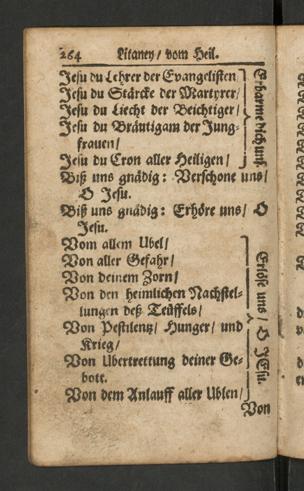 264 Litaney / vom Heil.
Jesu du Lehrer der Evangelisten
Jesu du Stärcke der Martyrer /
Jesu du Liecht der Beichtiger /
Jesu du Bräutigam der Jung-
frauen /
Jesu du Cron aller Heiligen /
Erbarme dich uns.
Biß uns gnädig: Verschone uns /
O Jesu.
Biß uns gnädig: Erhöre uns / O
Jesu.
Vom allem Ubel /
Von aller Gefahr /
Von deinem Zorn /
Von den heimlichen Nachstel-
lungen deß Teüffels /
Von Pestilentz / Hunger / und
Krieg /
Von Ubertrettung deiner Ge-
bott.
Von dem Anlauff aller Ublen /
Erlöse uns / O JEsu.
Von